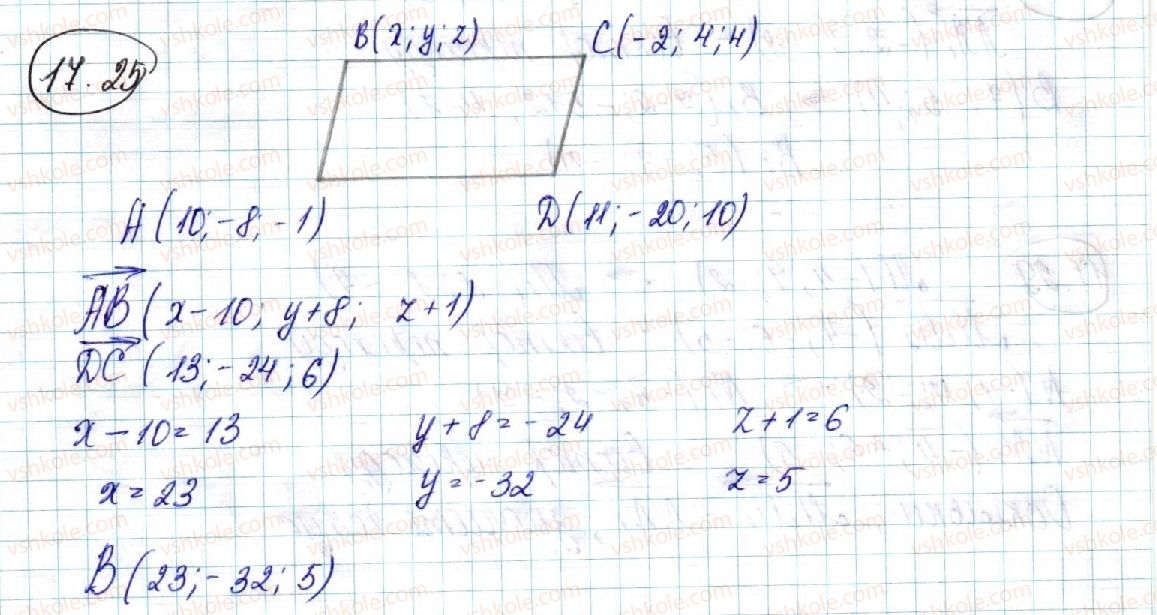 17.25
B(x; y; z) C(-2; 4; 4)
A(10; -8; -1) D(11; -20; 10)
AB(x-10; y+8; z+1)
DC(13; -24; 6)
x-10=13 y+8=-24 z+1=6
x=23 y=-32 z=5
B(23; -32; 5)
vshkole.com